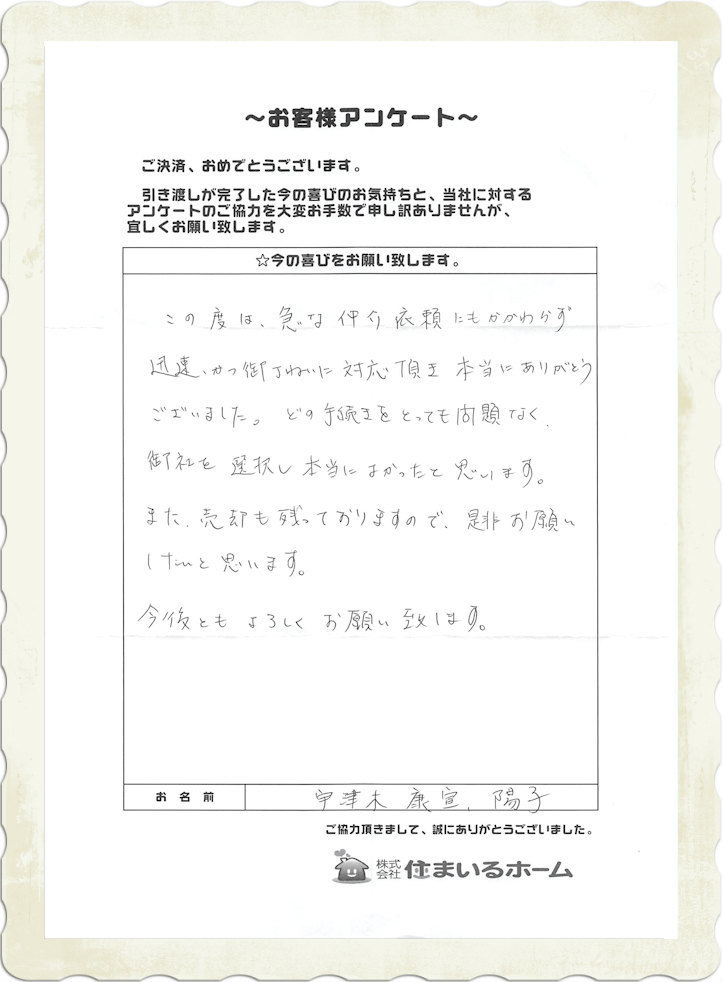 ～お客様アンケート～
ご決済、おめでとうございます。
引き渡しが完了した今の喜びのお気持ちと、当社に対する
アンケートのご協力を大変お手数で申し訳ありませんが、
宜しくお願い致します。
☆今の喜びをお願い致します。
この度は、急な仲介依頼にもかかわらず
迅速、かつ御丁ねいに対応頂き本当にありがとう
ございました。どの手続きをとっても問題なく、
御社を選択し本当によかったと思います。
また、売却も残っておりますので、是非お願い
したいと思います。
今後ともよろしくお願い致します。
お名前
宇津木 康宣、陽子
ご協力頂きまして、誠にありがとうございました。
株式会社 住まいるホーム